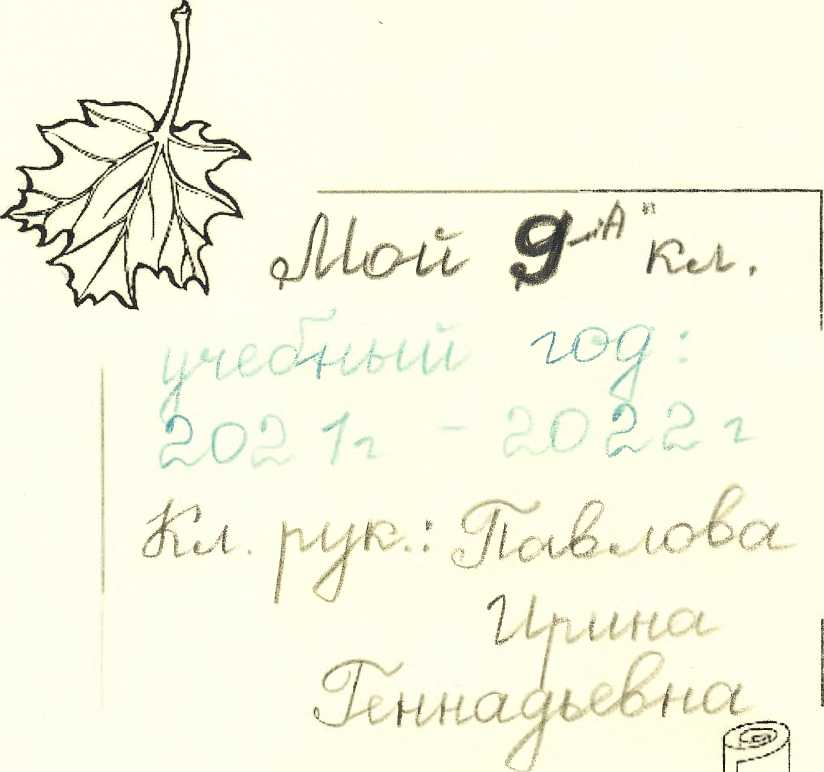 Мой 9-"А" кл.
учебный год:
2021г - 2022г
Кл. рук.: Павлова
Ирина
Геннадьевна